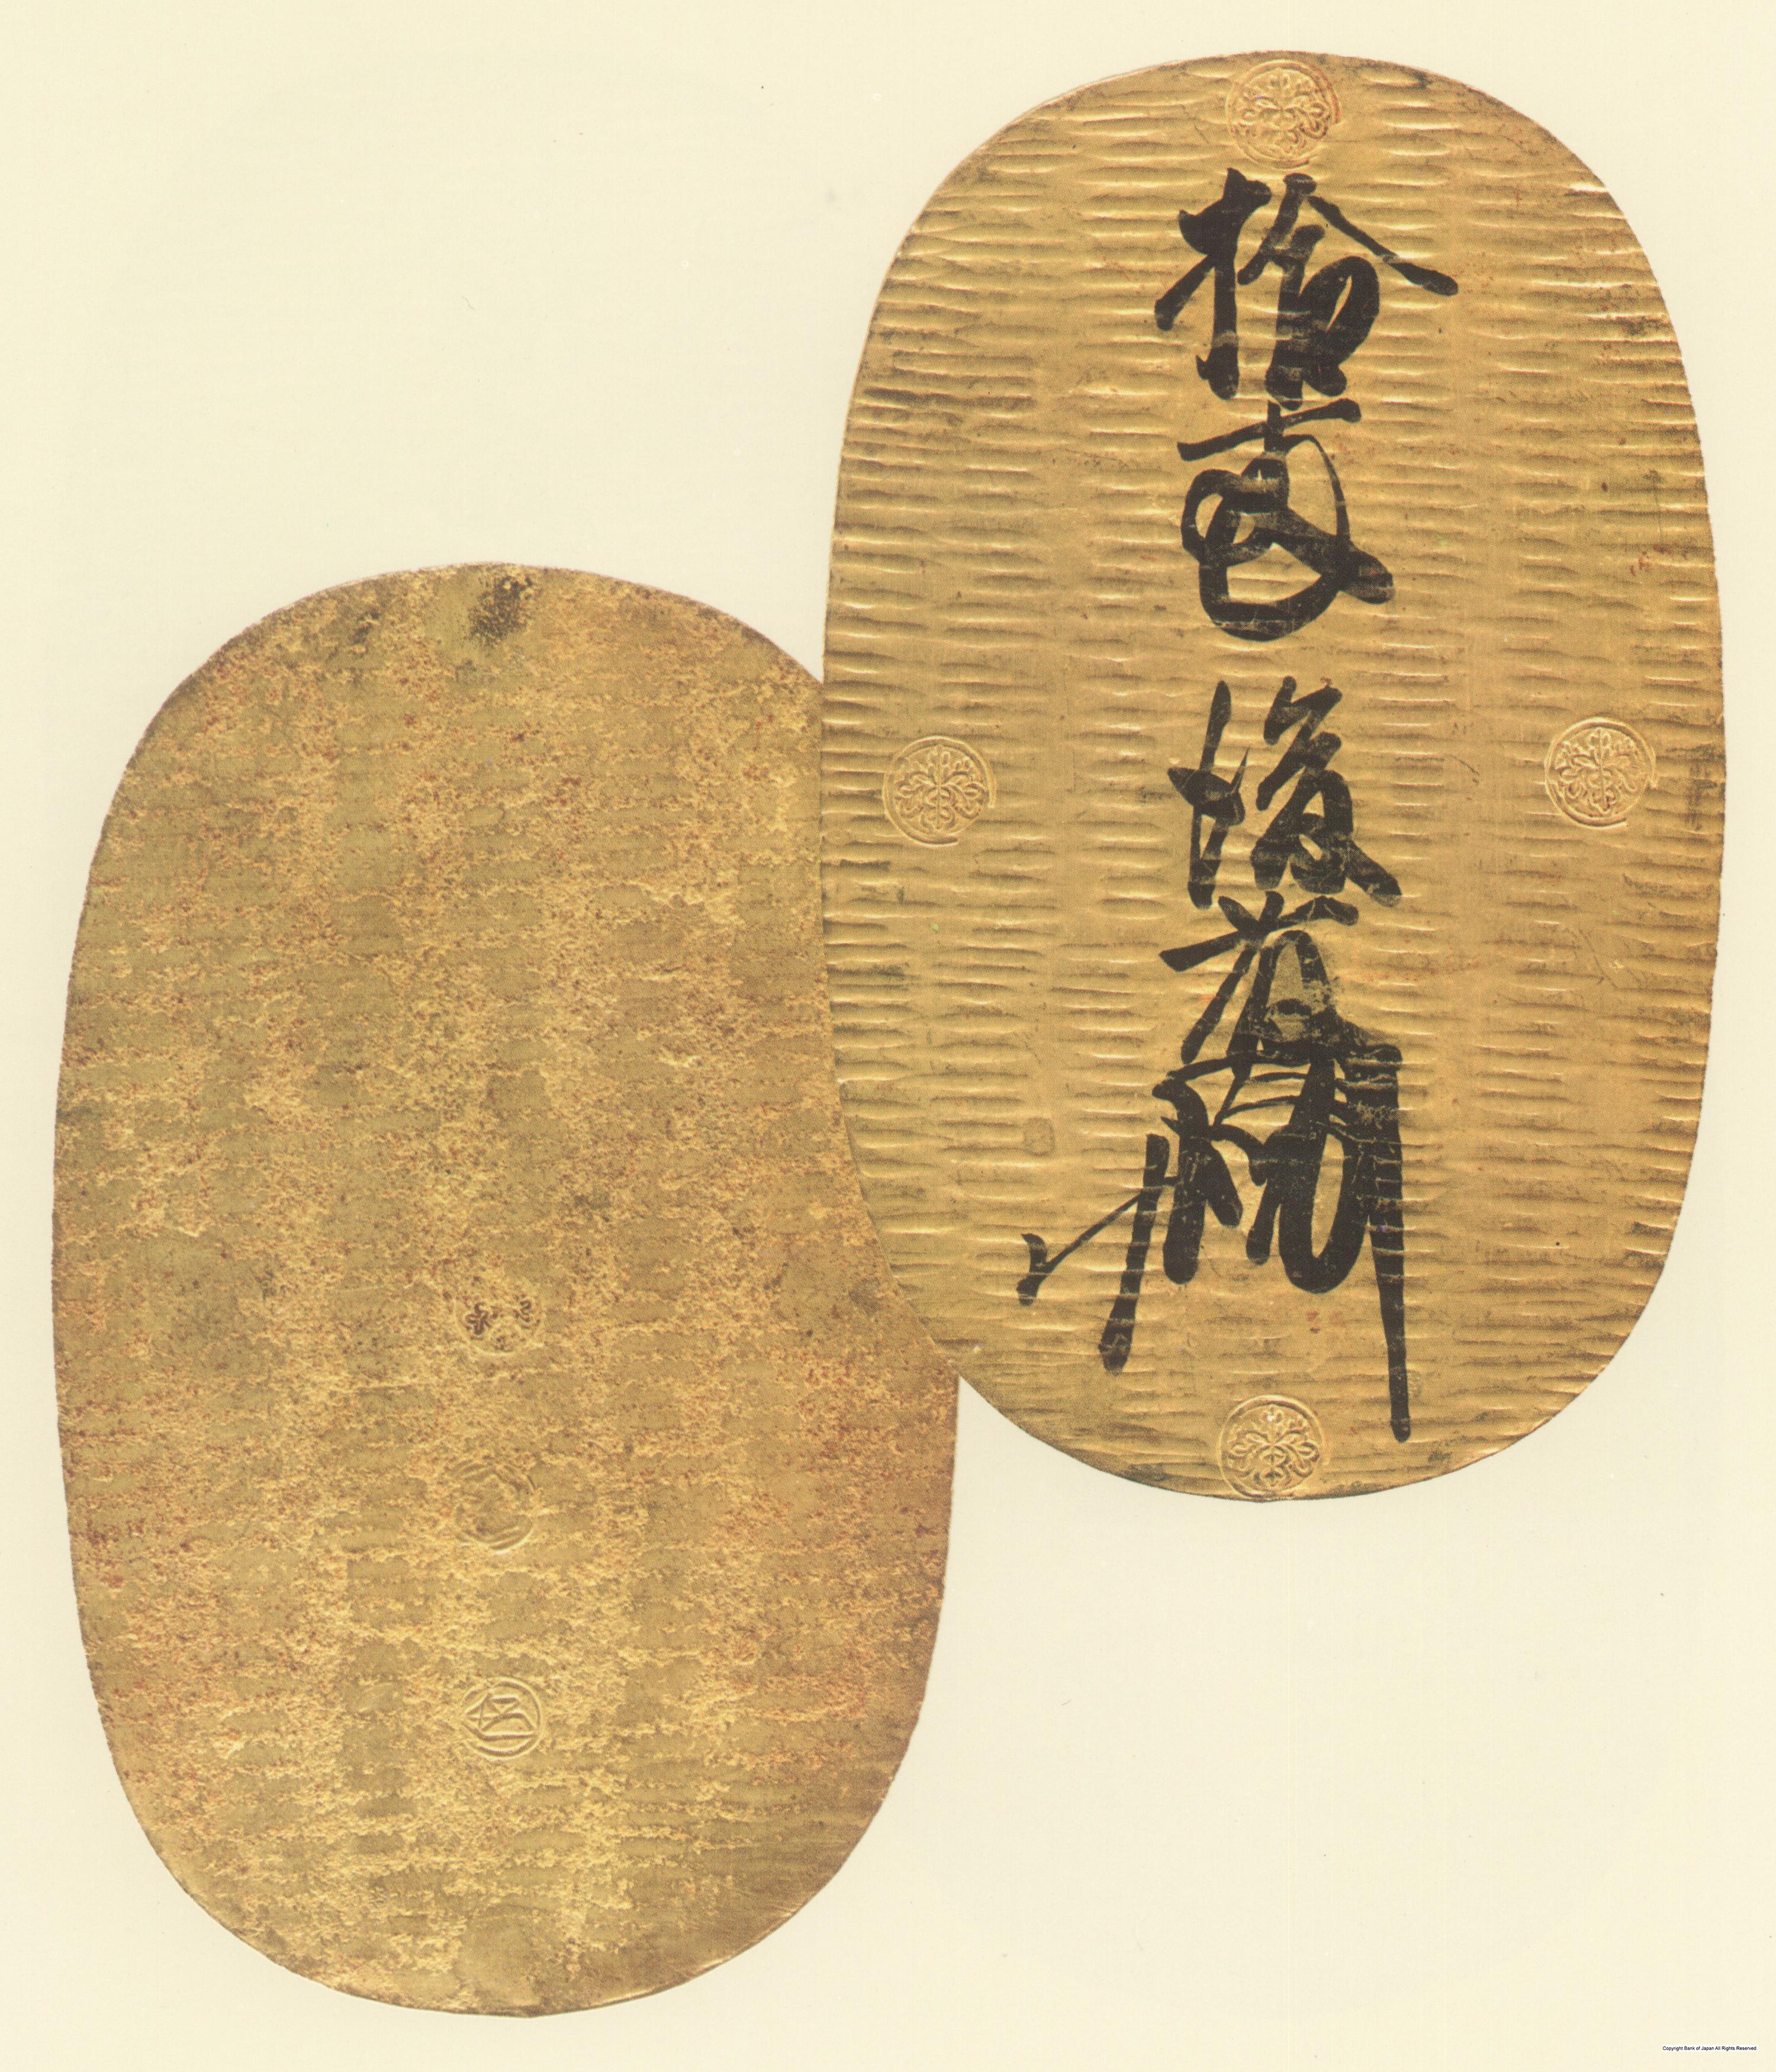 拾両後藤
Copyright Bank of Japan All Rights Reserved